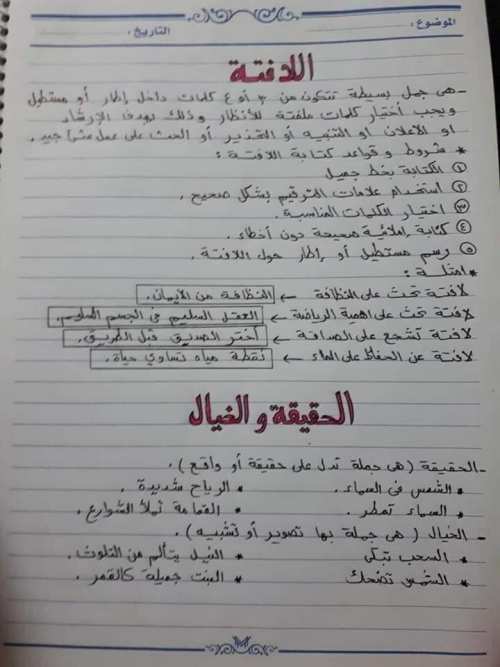 الموضوع: التاريخ:
اللافتة
- هى جمل بسيطة تتكون من ٣ أو ٤ كلمات داخل إطار أو مستطيل
ويجب أختيار كلمات ملفتة للأنظار وذلك بهدف الإرشاد
او الاعلان او التنبيه أو التحذير أو الحث على عمل شئ جيد.
* شروط وقواعد كتابة اللافتة :
① الكتابة بخط جميل
② استخدام علامات الترقيم بشكل صحيح.
③ اختيار الكلمات المناسبة.
④ كتابة إملائية صحيحة دون أخطاء.
⑤ رسم مستطيل أو إطار حول اللافتة.
* امثلة :
لافتة تحث على النظافة ← النظافة من الأيمان.
لافتة تحث على اهمية الرياضة ← العقل السليم فى الجسم السليم.
لافتة تشجع على الصداقة ← أختر الصديق قبل الطريق.
لافتة عن الحفاظ على الماء ← نقطة مياه تساوي حياة.
الحقيقة و الخيال
- الحقيقة ( هى جملة تدل على حقيقة أو واقع ).
* الشمس فى السماء. * الرياح شديدة.
* السماء تمطر. * القمامة تملأ الشوارع.
- الخيال ( هى جملة بها تصوير أو تشبيه ).
* السحب تبكى * النيل يتألم من التلوث.
* الشمس تضحك * البنت جميلة كالقمر.